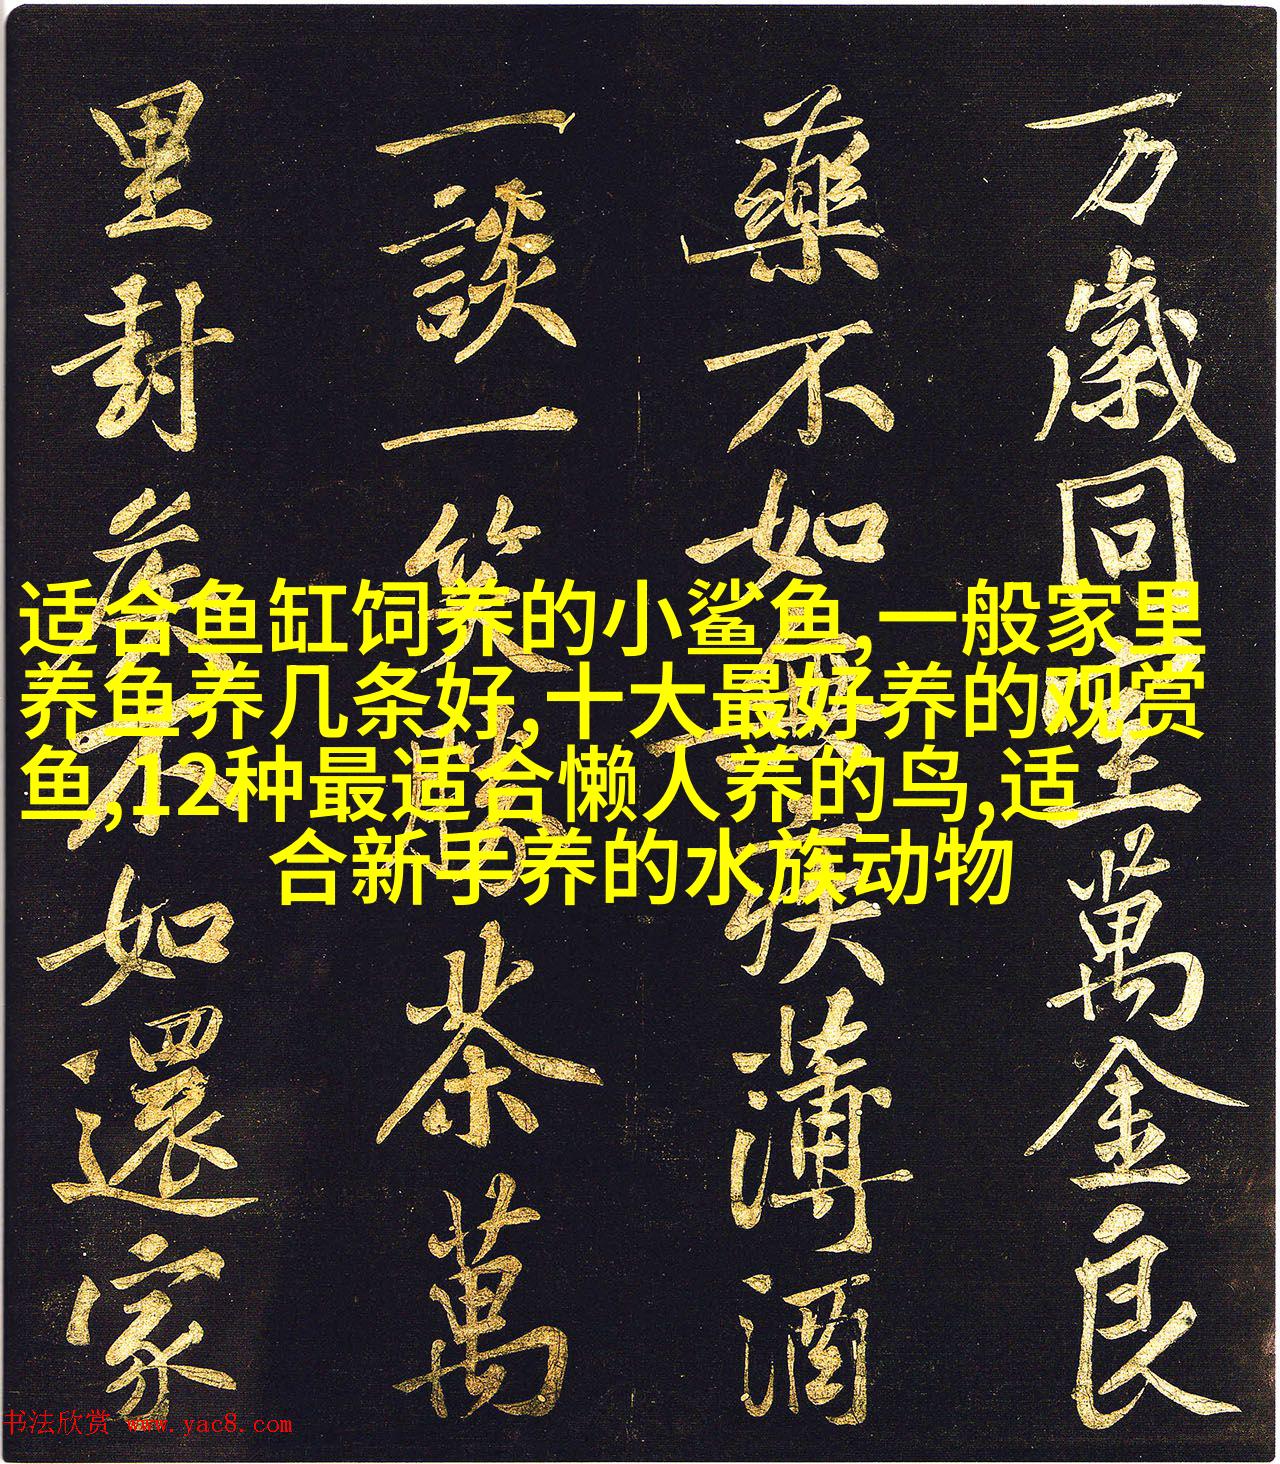 万歲同室萬金良
藥不如無疾薄酒
一談一笑勝茶萬
里封侯不如還家
适合鱼缸饲养的小鲨鱼,一般家里
养鱼养几条好,十大最好养的观赏
鱼,12种最适合懒人养的鸟,适
合新手养的水族动物
书法欣赏 www.yac8.com